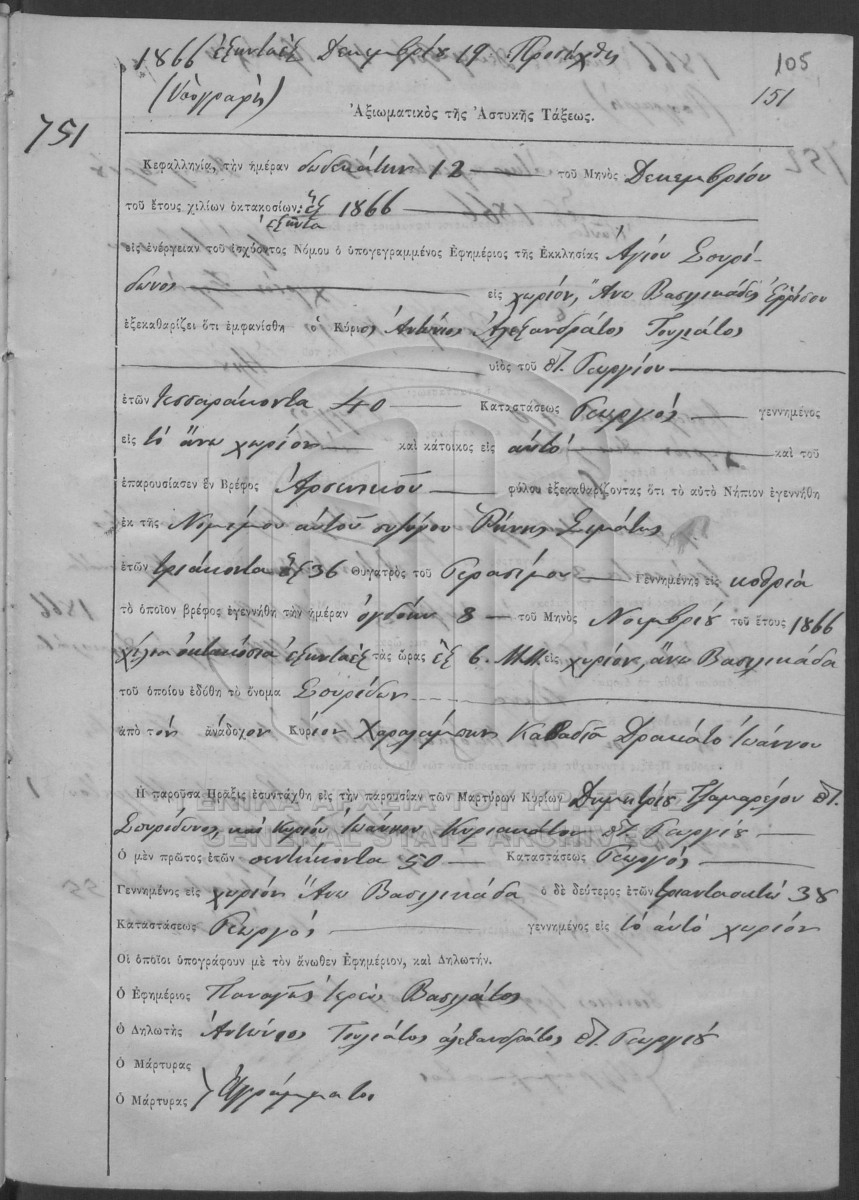 105
1866 ἑξηνταέξ Δεκεμβρίου 19. Προσήχθη
(Ὑπογραφὴ)
151
Ἀξιωματικὸς τῆς Ἀστυκῆς Τάξεως.
751
Κεφαλληνία, τὴν ἡμέραν δωδεκάτην 12 τοῦ Μηνὸς Δεκεμβρίου
τοῦ ἔτους χιλίων ὀκτακοσίων ἑξήντα ἓξ 1866
εἰς ἐνέργειαν τοῦ ἰσχύοντος Νόμου ὁ ὑπογεγραμμένος Ἐφημέριος τῆς Ἐκκλησίας Ἁγίου Σπυρί-
δωνος εἰς χωρίον, Ἄνω Βασιλικάδες Ἐρρίσου
ἐξεκαθαρίζει ὅτι ἐμφανίσθη ὁ Κύριος Ἀντώνιος Ἀλεξανδράτος Τουλιάτος
υἱὸς τοῦ ποτ. Γεωργίου
ἐτῶν τεσσαράκοντα 40 Καταστάσεως Γεωργός γεννημένος
εἰς τὸ ἄνω χωρίον καὶ κάτοικος εἰς αὐτό καὶ τοῦ
ἐπαρουσίασεν ἓν Βρέφος Ἀρσενικοῦ φύλου ἐξεκαθαρίζοντας ὅτι τὸ αὐτὸ Νήπιον ἐγεννήθη
ἐκ τῆς Νομίμου αὐτοῦ συζύγου Ρήνης
ἐτῶν τριάκοντα ἓξ 36 Θυγατρὸς τοῦ Γερασίμου Γεννημένης εἰς κοθριὰ
τὸ ὁποῖον βρέφος ἐγεννήθη τὴν ἡμέραν ὀγδόην 8 τοῦ Μηνὸς Νοεμβρίου τοῦ ἔτους 1866
χίλια ὀκτακόσια ἑξηνταέξ τὰς ὥρας ἓξ 6. Μ.Μ. εἰς χωρίον, ἄνω Βασιλικάδα
τοῦ ὁποίου ἐδόθη τὸ ὄνομα Σπυρίδων
ἀπὸ τὸν ἀνάδοχον Κύριον Χαραλάμπην Καβαδία Δρακάτο Ἰωάννου
Ἡ παροῦσα Πρᾶξις ἐσυντάχθη εἰς τὴν παρουσίαν τῶν Μαρτύρων Κυρίων Δημητρίου Τζαμαρέλου ποτ.
ΓΕΝΙΚΑ ΑΡΧΕΙΑ ΤΟΥ ΚΡΑΤΟΥΣ
Σπυρίδωνος, καὶ Κυρίου Ἰωάννου Κυριακάτου ποτ. Γεωργίου
GENERAL STATE ARCHIVES
Ὁ μὲν πρῶτος ἐτῶν πεντήκοντα 50 Καταστάσεως Γεωργός
Γεννημένος εἰς χωρίον Ἄνω Βασιλικάδα ὁ δὲ δεύτερος ἐτῶν τριανταοκτώ 38
Καταστάσεως Γεωργός γεννημένος εἰς τὸ αὐτό χωρίον
Οἱ ὁποῖοι ὑπογράφουν μὲ τὸν ἄνωθεν Ἐφημέριον, καὶ Δηλωτήν.
Ὁ Ἐφημέριος Παναγῆς Ἱερεὺς Βασιλάτος
Ὁ Δηλωτὴς Ἀντώνιος Τουλιάτος ἀλεξανδράτος ποτ. Γεωργίου
Ὁ Μάρτυρας
Ὁ Μάρτυρας } Ἀγράμματοι